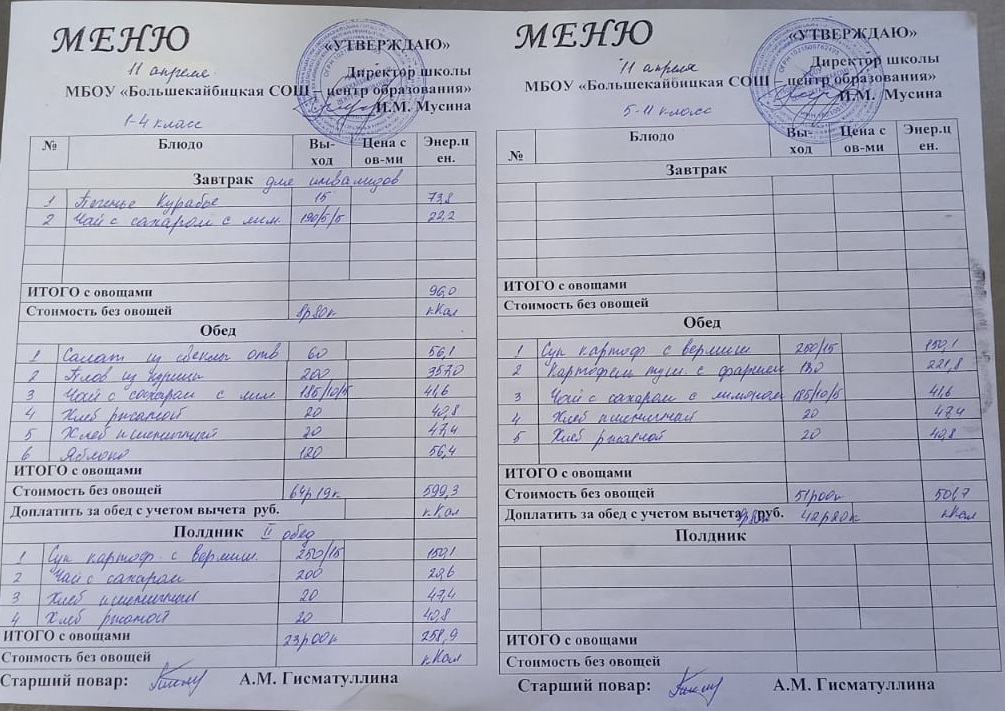 МЕНЮ
«УТВЕРЖДАЮ»
11 апреля
Директор школы
МБОУ «Большекайбицкая СОШ – центр образования»
И.М. Мусина
1-4 класс
№ Блюдо Вы-ход Цена с ов-ми Энер.ц ен.
Завтрак для инвалидов
1 Печенье Курабье 15 73,8
2 Чай с сахаром с лим 190/5/5 22,2
ИТОГО с овощами 96,0
Стоимость без овощей 9р80к кКал
Обед
1 Салат из свеклы отв 60 56,1
2 Плов из курицы 200 357,0
3 Чай с сахаром с лим 185/10/5 41,6
4 Хлеб ржаной 20 40,8
5 Хлеб пшеничный 20 47,4
6 Яблоко 120 56,4
ИТОГО с овощами
Стоимость без овощей 64р19к 599,3
Доплатить за обед с учетом вычета руб. кКал
Полдник II обед
1 Суп картоф. с вермиш. 250/15 150,1
2 Чай с сахаром 200
3 Хлеб пшеничный 20 47,4
4 Хлеб ржаной 20 40,8
ИТОГО с овощами 23р00к 258,9
Стоимость без овощей кКал
Старший повар: А.М. Гисматуллина
МЕНЮ
«УТВЕРЖДАЮ»
11 апреля
Директор школы
МБОУ «Большекайбицкая СОШ – центр образования»
И.М. Мусина
5-11 класс
№ Блюдо Вы-ход Цена с ов-ми Энер.ц ен.
Завтрак
ИТОГО с овощами
Стоимость без овощей
Обед
1 Суп картоф с вермиш. 250/15 150,1
2 Картофель туш. с фаршем 221,8
3 Чай с сахаром с лимоном 185/10/5 41,6
4 Хлеб пшеничный 20 47,4
5 Хлеб ржаной 20 40,8
ИТОГО с овощами
Стоимость без овощей 51р00к 501,7
Доплатить за обед с учетом вычета руб. 42р20к кКал
Полдник
ИТОГО с овощами
Стоимость без овощей
Старший повар: А.М. Гисматуллина